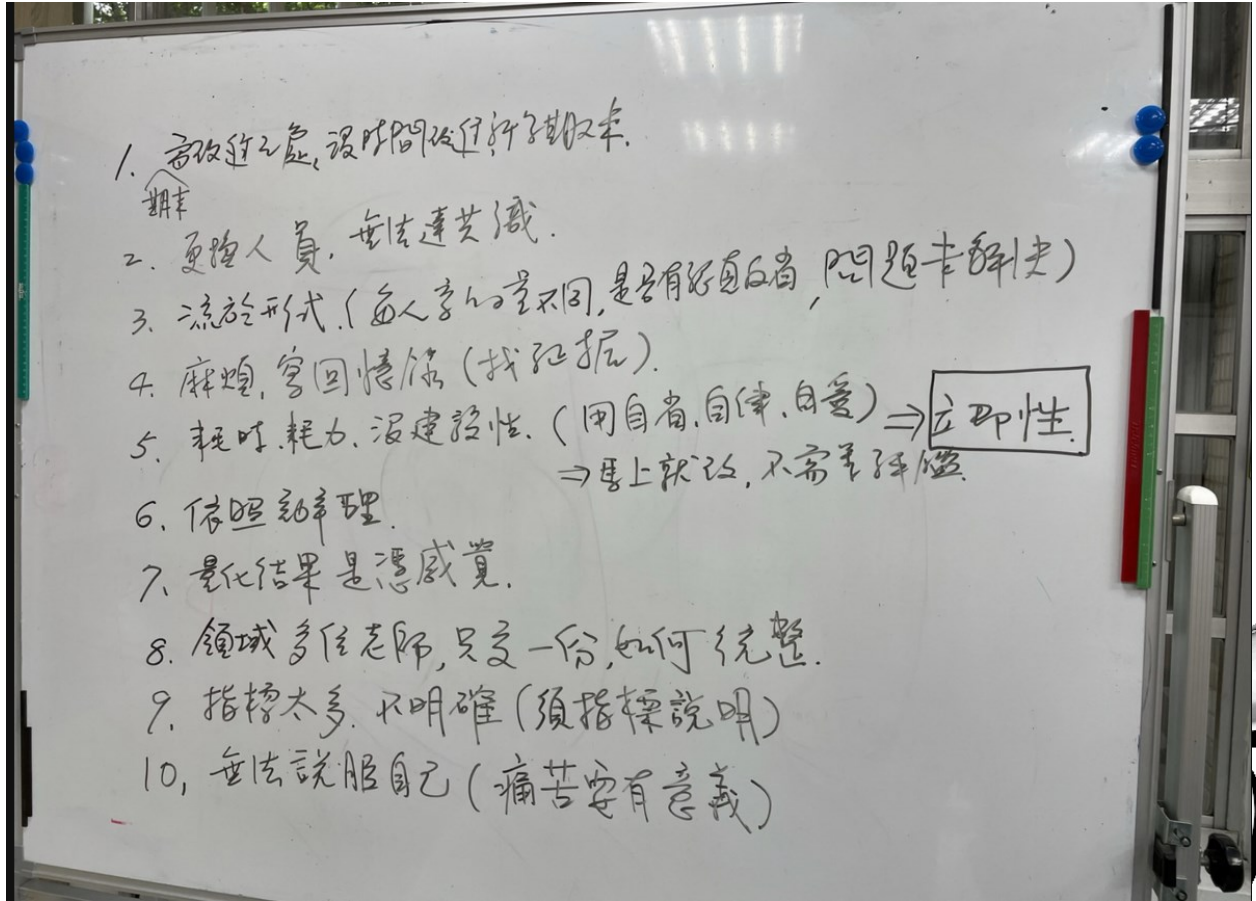 1. 需改進之處,沒時間改進
期末
2. 更換人員,無法達共識.
3. 流於形式.(每人享的量不同,是否有認真反省,問題未解決)
4. 麻煩,寫回憶錄(找証据).
5. 耗時.耗力、沒建設性.(用自省.自律、自愛)⇒立即性.
⇒馬上就改,不需等評鑑.
6、依照辦理.
7、量化結果是憑感覺.
8. 領域多位老師,只交一份,如何統整.
9. 指標太多.不明確(須指標說明)
10, 無法說服自己(痛苦要有意義)